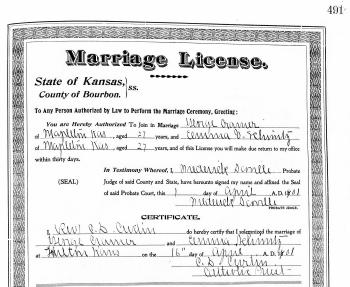 491
Marriage License.
State of Kansas,
County of Bourbon. } ss.
To Any Person Authorized by Law to Perform the Marriage Ceremony, Greeting:
You are Hereby Authorized To Join in Marriage George Cramer
of Mapleton Kas, aged 27 years, and Emma Schmitz
of Mapleton Kas, aged 27 and of this License you will make due return to my office
within thirty days.
In Testimony Whereof, I Probate
(SEAL) Judge of said County and State, have hereunto signed my name and affixed the Seal
of said Probate Court, this day of April A. D. 1901
PROBATE JUDGE.
CERTIFICATE.
I Rev C D Curtin do hereby certify that I solemnized the marriage of
George Cramer and Emma Schmitz
at Kans on the 16" day of April A. D. 1901
C. D. Curtin
Catholic Priest